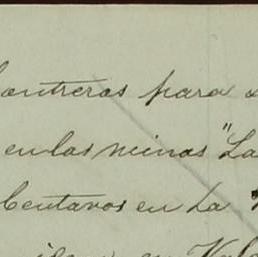 Contreras para
en las minas "La
Centavos en La
en